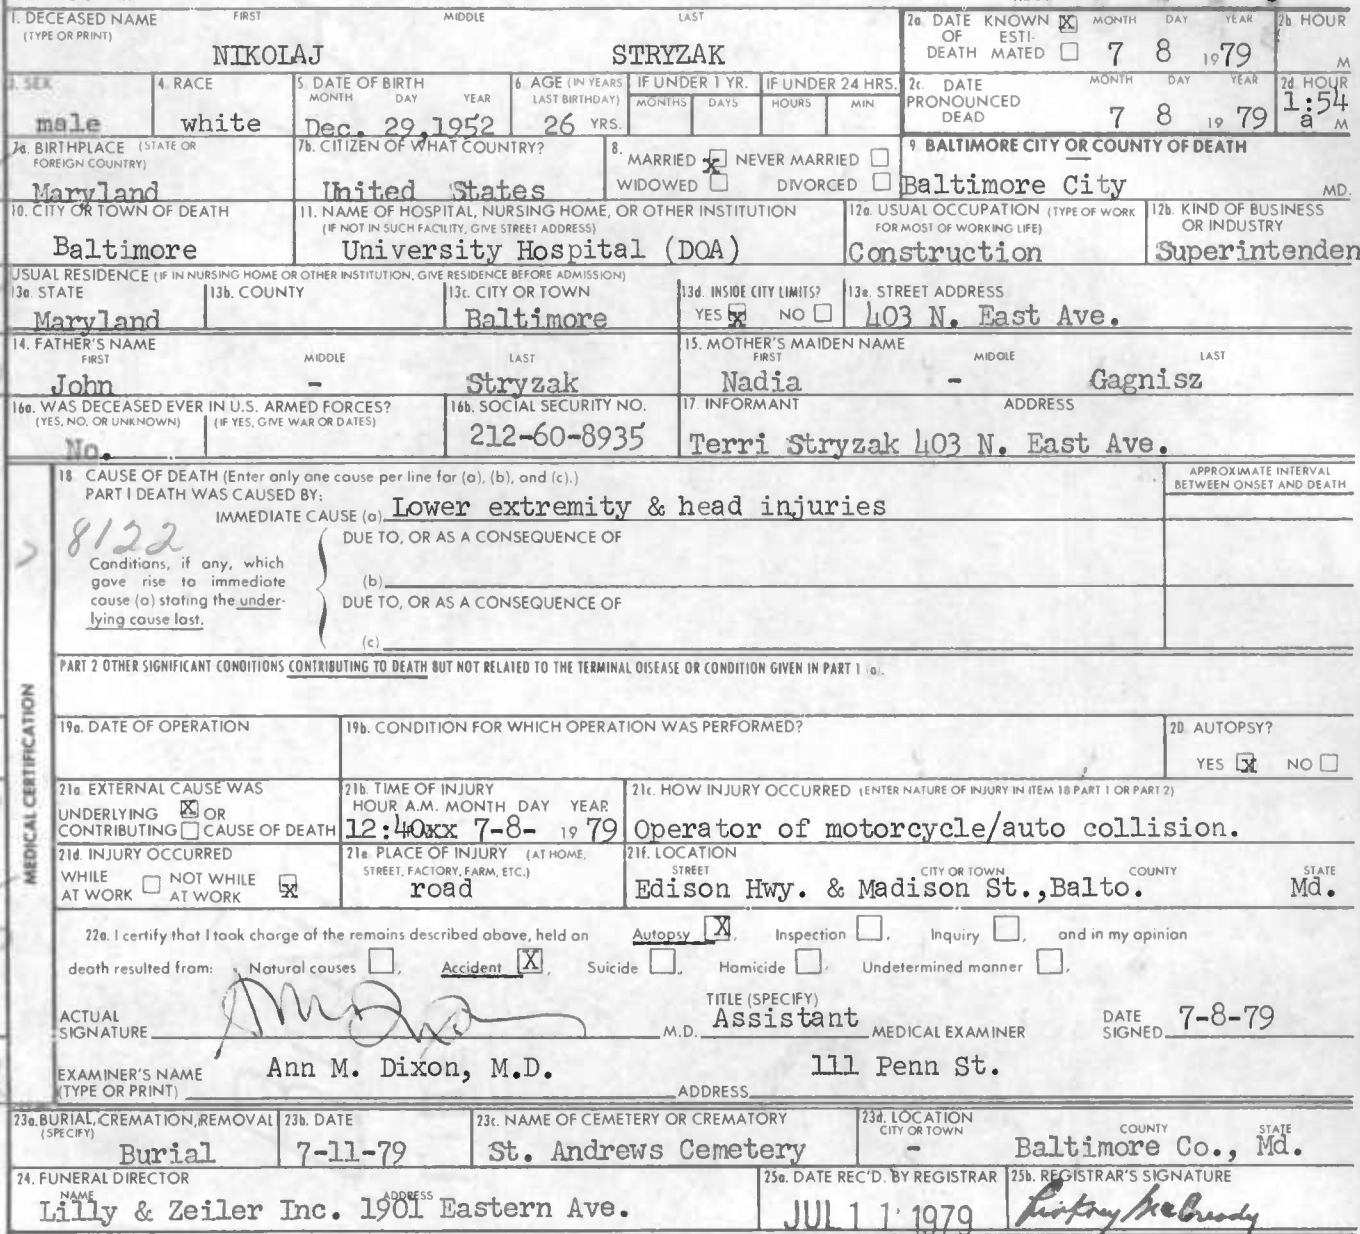 1. DECEASED NAME FIRST MIDDLE LAST
(TYPE OR PRINT)
NIKOLAJ STRYZAK
2a. DATE KNOWN X MONTH DAY YEAR
OF ESTI-
DEATH MATED 7 8 1979
2b. HOUR
M
3. SEX
male
4. RACE
white
5. DATE OF BIRTH
MONTH DAY YEAR
Dec. 29,1952
6. AGE (IN YEARS
LAST BIRTHDAY)
26 YRS.
IF UNDER 1 YR.
MONTHS DAYS
IF UNDER 24 HRS.
HOURS MIN
2c. DATE MONTH DAY YEAR
PRONOUNCED
DEAD 7 8 19 79
2d. HOUR
1:54
a M
7a. BIRTHPLACE (STATE OR
FOREIGN COUNTRY)
Maryland
7b. CITIZEN OF WHAT COUNTRY?
United States
8. MARRIED X NEVER MARRIED
WIDOWED DIVORCED
9. BALTIMORE CITY OR COUNTY OF DEATH
Baltimore City MD.
10. CITY OR TOWN OF DEATH
Baltimore
11. NAME OF HOSPITAL, NURSING HOME, OR OTHER INSTITUTION
(IF NOT IN SUCH FACILITY, GIVE STREET ADDRESS)
University Hospital (DOA)
12a. USUAL OCCUPATION (TYPE OF WORK
FOR MOST OF WORKING LIFE)
Construction
12b. KIND OF BUSINESS
OR INDUSTRY
Superintenden
USUAL RESIDENCE (IF IN NURSING HOME OR OTHER INSTITUTION, GIVE RESIDENCE BEFORE ADMISSION)
13a. STATE
Maryland
13b. COUNTY
13c. CITY OR TOWN
Baltimore
13d. INSIDE CITY LIMITS?
YES X NO
13e. STREET ADDRESS
403 N. East Ave.
14. FATHER'S NAME
FIRST MIDDLE LAST
John - Stryzak
15. MOTHER'S MAIDEN NAME
FIRST MIDDLE LAST
Nadia - Gagnisz
16a. WAS DECEASED EVER IN U.S. ARMED FORCES?
(YES, NO, OR UNKNOWN) (IF YES, GIVE WAR OR DATES)
No.
16b. SOCIAL SECURITY NO.
212-60-8935
17. INFORMANT ADDRESS
Terri Stryzak 403 N. East Ave.
MEDICAL CERTIFICATION
18 CAUSE OF DEATH (Enter only one cause per line for (a), (b), and (c).)
PART I DEATH WAS CAUSED BY:
IMMEDIATE CAUSE (a) Lower extremity & head injuries
APPROXIMATE INTERVAL
BETWEEN ONSET AND DEATH
8122
DUE TO, OR AS A CONSEQUENCE OF
Conditions, if any, which
gave rise to immediate
cause (a) stating the under-
lying cause last.
(b)
DUE TO, OR AS A CONSEQUENCE OF
(c)
PART 2 OTHER SIGNIFICANT CONDITIONS CONTRIBUTING TO DEATH BUT NOT RELATED TO THE TERMINAL DISEASE OR CONDITION GIVEN IN PART 1 (a).
19a. DATE OF OPERATION
19b. CONDITION FOR WHICH OPERATION WAS PERFORMED?
20. AUTOPSY?
YES X NO
21a. EXTERNAL CAUSE WAS
UNDERLYING X OR
CONTRIBUTING CAUSE OF DEATH
21b. TIME OF INJURY
HOUR A.M. MONTH DAY YEAR
12:40xx 7-8- 19 79
21c. HOW INJURY OCCURRED (ENTER NATURE OF INJURY IN ITEM 18 PART 1 OR PART 2)
Operator of motorcycle/auto collision.
21d. INJURY OCCURRED
WHILE NOT WHILE
AT WORK AT WORK X
21e PLACE OF INJURY (AT HOME,
STREET, FACTORY, FARM, ETC.)
road
21f. LOCATION
STREET CITY OR TOWN COUNTY STATE
Edison Hwy. & Madison St.,Balto. Md.
22a. I certify that I took charge of the remains described above, held an Autopsy X, Inspection , Inquiry , and in my opinion
death resulted from: Natural causes , Accident X, Suicide , Homicide , Undetermined manner .
ACTUAL
SIGNATURE M.D.
TITLE (SPECIFY)
Assistant MEDICAL EXAMINER
DATE
SIGNED 7-8-79
EXAMINER'S NAME
(TYPE OR PRINT) Ann M. Dixon, M.D.
ADDRESS 111 Penn St.
23a. BURIAL, CREMATION, REMOVAL
(SPECIFY)
Burial
23b. DATE
7-11-79
23c. NAME OF CEMETERY OR CREMATORY
St. Andrews Cemetery
23d. LOCATION
CITY OR TOWN COUNTY STATE
- Baltimore Co., Md.
24. FUNERAL DIRECTOR
NAME ADDRESS
Lilly & Zeiler Inc. 1901 Eastern Ave.
25a. DATE REC'D. BY REGISTRAR
JUL 11 1979
25b. REGISTRAR'S SIGNATURE